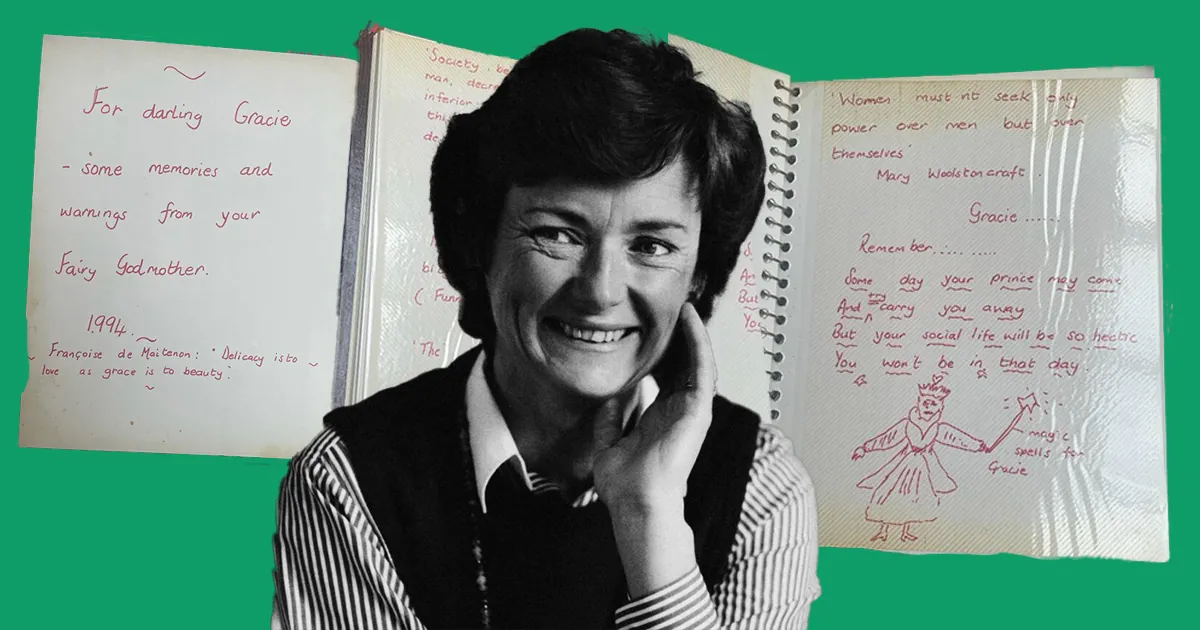 For darling Gracie
- some memories and
warnings from your
Fairy Godmother.
1994.
Françoise de Maitenon: "Delicacy is to
love as grace is to beauty".
'Society, be
man, decre
inferior
thi
de
bi
( Funn
'The
S
An
But
You
'Women must nt seek only
power over men but over
themselves'
Mary Woolstoncraft.
Gracie ......
Remember .........
Some day your prince may come
try
And carry you away
But your social life will be so hectic
You won't be in that day.
magic
spells for
Gracie